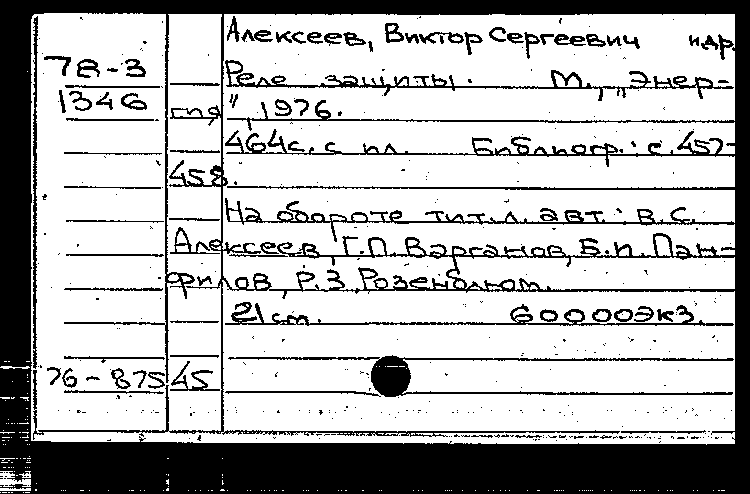 Алексеев, Виктор Сергеевич идр.
78-3
Реле защиты. М., „Энер-
1346
гия", 1976.
464с. с ил. Библиогр.: с. 457-
458.
На обороте тит. л. авт.: В.С.
Алексеев, Г.П. Варганов, Б.И. Пан-
филов, Р.З. Розенблюм.
21 cm. 60000экз.
76-87545